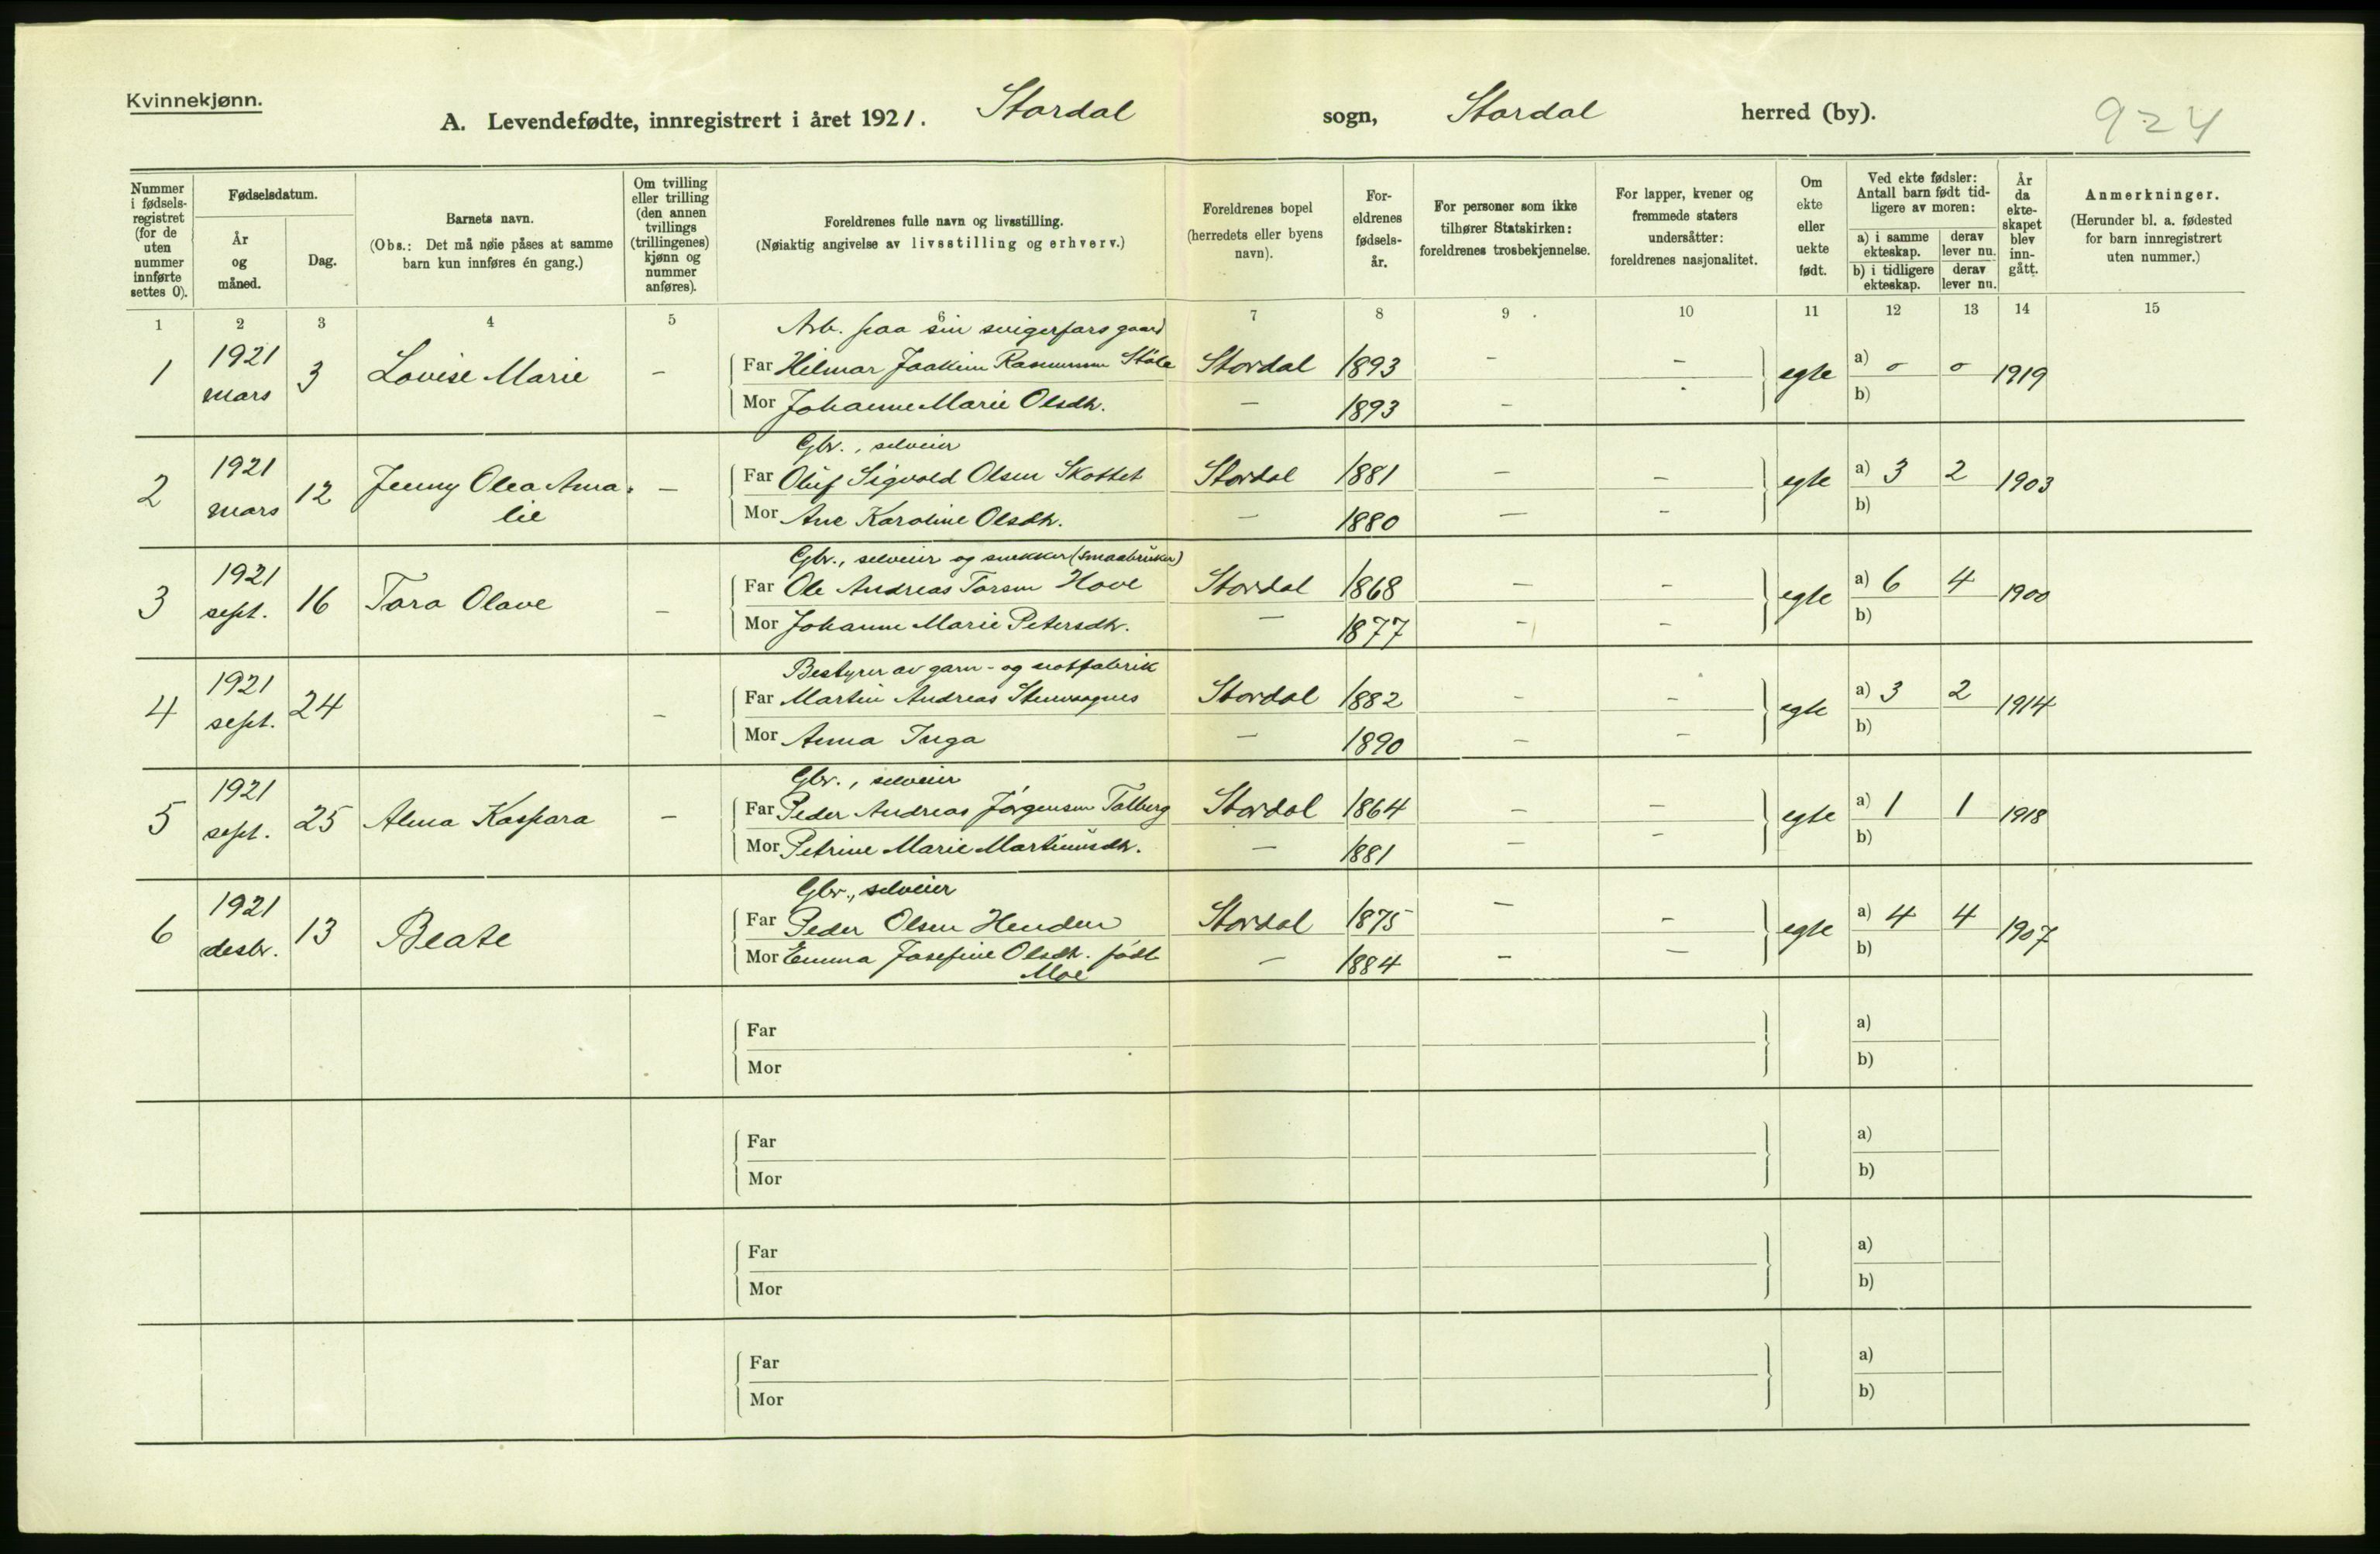 Kvinnekjønn.
A. Levendefødte, innregistrert i året 1921. Stordal sogn, Stordal herred (by). 924
Nummer i fødselsregistret (for de uten nummer innførte settes 0).
Fødselsdatum.
År og måned.
Dag.
Barnets navn.
(Obs.: Det må nøie påses at samme barn kun innføres én gang.)
Om tvilling eller trilling (den annen tvillings (trillingenes) kjønn og nummer anføres).
Foreldrenes fulle navn og livsstilling.
(Nøiaktig angivelse av livsstilling og erhverv.)
Foreldrenes bopel (herredets eller byens navn).
Foreldrenes fødselsår.
For personer som ikke tilhører Statskirken: foreldrenes trosbekjennelse.
For lapper, kvener og fremmede staters undersåtter: foreldrenes nasjonalitet.
Om ekte eller uekte født.
Ved ekte fødsler: Antall barn født tidligere av moren:
a) i samme ekteskap. derav lever nu.
b) i tidligere ekteskap. derav lever nu.
År da ekteskapet blev inngått.
Anmerkninger.
(Herunder bl. a. fødested for barn innregistrert uten nummer.)
1 2 3 4 5 6 7 8 9 10 11 12 13 14 15
Arb. paa sin svigerfars gaard
1 1921 mars 3 Lovise Marie - Far Hilmar Joakim Rasmussen Støle Stordal 1893 - - egte a) 0 0 1919
Mor Johanne Marie Olsdtr. - 1893 - - b)
Gbr., selveier
2 1921 mars 12 Jenny Olea Amalie - Far Oluf Sigvald Olsen Skottet Stordal 1881 - - egte a) 3 2 1903
Mor Ane Karoline Olsdtr. - 1880 - - b)
Gbr., selveier og snekker (smaabruker)
3 1921 sept. 16 Tora Olave - Far Ole Andreas Torsen Hove Stordal 1868 - - egte a) 6 4 1900
Mor Johanne Marie Petersdtr. - 1877 - - b)
Bestyrer av garn- og notfabrik
4 1921 sept. 24 - Far Martin Andreas Stordal 1882 - - egte a) 3 2 1914
Mor Anna Inga - 1890 - - b)
Gbr., selveier
5 1921 sept. 25 Alma Kaspara - Far Peder Andreas Jørgensen Talberg Stordal 1864 - - egte a) 1 1 1918
Mor Petrine Marie Martinusdtr. - 1881 - - b)
Gbr., selveier
6 1921 desbr. 13 Beate Far Peder Olsen Henden Stordal 1875 - - egte a) 4 4 1907
Mor Emma Josefine Olsdtr. født Moe - 1884 - - b)
Far a)
Mor b)
Far a)
Mor b)
Far a)
Mor b)
Far a)
Mor b)